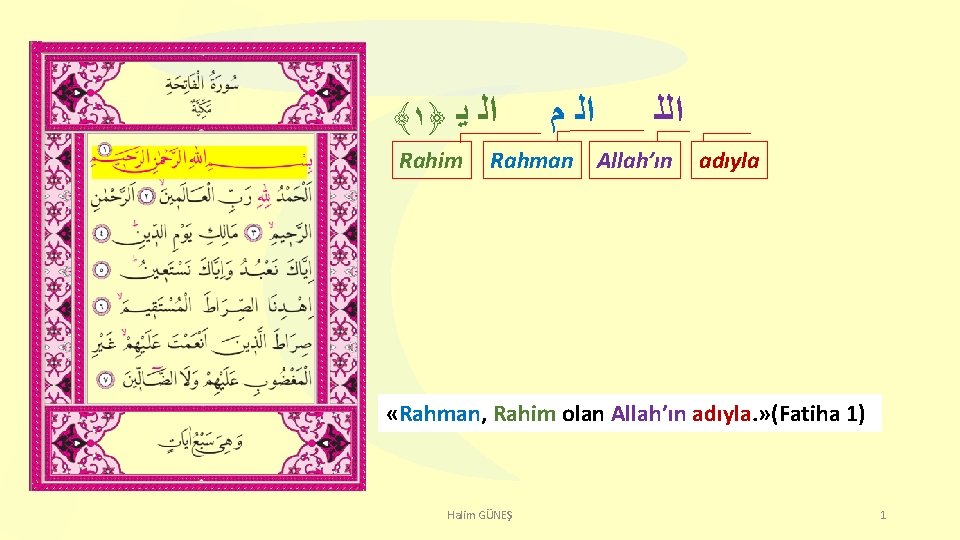 سُورَةُ الْفَاتِحَةِ
مَكِّيَّةٌ
بِسْمِ اللّٰهِ الرَّحْمٰنِ الرَّحِيمِ ﴿١﴾
اَلْحَمْدُ لِلّٰهِ رَبِّ الْعَالَمِينَ ﴿٢﴾ اَلرَّحْمٰنِ
الرَّحِيمِ ﴿٣﴾ مَالِكِ يَوْمِ الدِّينِ ﴿٤﴾
اِيَّاكَ نَعْبُدُ وَاِيَّاكَ نَسْتَعِينُ ﴿٥﴾
اِهْدِنَا الصِّرَاطَ الْمُسْتَقِيمَ ﴿٦﴾
صِرَاطَ الَّذِينَ اَنْعَمْتَ عَلَيْهِمْ غَيْرِ
الْمَغْضُوبِ عَلَيْهِمْ وَلَا الضَّالِّينَ ﴿٧﴾
وَهِيَ سَبْعُ اٰيَاتٍ
اللـ الـ م الـ يـ ﴿١﴾
Rahim Rahman Allah’ın adıyla
«Rahman, Rahim olan Allah’ın adıyla.»(Fatiha 1)
Halim GÜNEŞ
1